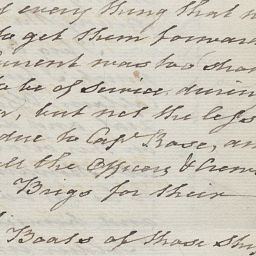 every thing that
to get them forward
was too sho
to be of service durin
, but not the less
due to Capt Base, an
the Officers & Crews
Brigs for their
Boats of those Shi